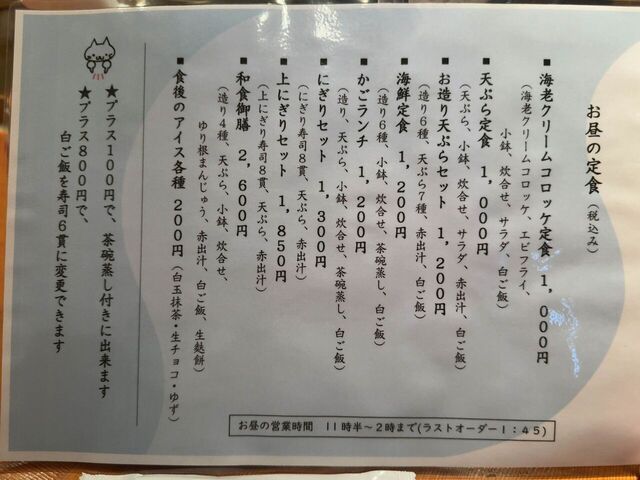 お昼の定食（税込み）
■海老クリームコロッケ定食 1,000円
（海老クリームコロッケ、エビフライ、
小鉢、炊合せ、サラダ、白ご飯）
■天ぷら定食 1,000円
（天ぷら、小鉢、炊合せ、サラダ、赤出汁、白ご飯）
■お造り天ぷらセット 1,200円
（造り6種、天ぷら7種、赤出汁、白ご飯）
■海鮮定食 1,200円
（造り6種、小鉢、炊合せ、茶碗蒸し、白ご飯）
■かごランチ 1,200円
（造り、天ぷら、小鉢、炊合せ、茶碗蒸し、白ご飯）
■にぎりセット 1,300円
（にぎり寿司8貫、天ぷら、赤出汁）
■上にぎりセット 1,850円
（上にぎり寿司8貫、天ぷら、赤出汁）
■和食御膳 2,600円
（造り4種、天ぷら、小鉢、炊合せ、
ゆり根まんじゅう、赤出汁、白ご飯、生麩餅）
■食後のアイス各種 200円（白玉抹茶・生チョコ・ゆず）
★プラス100円で、茶碗蒸し付きに出来ます
★プラス800円で、
白ご飯を寿司6貫に変更できます
お昼の営業時間 11時半～2時まで(ラストオーダー1:45)